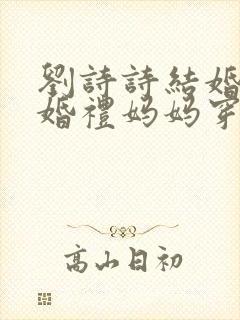 劉詩詩結婚
婚禮媽媽穿
高山日初